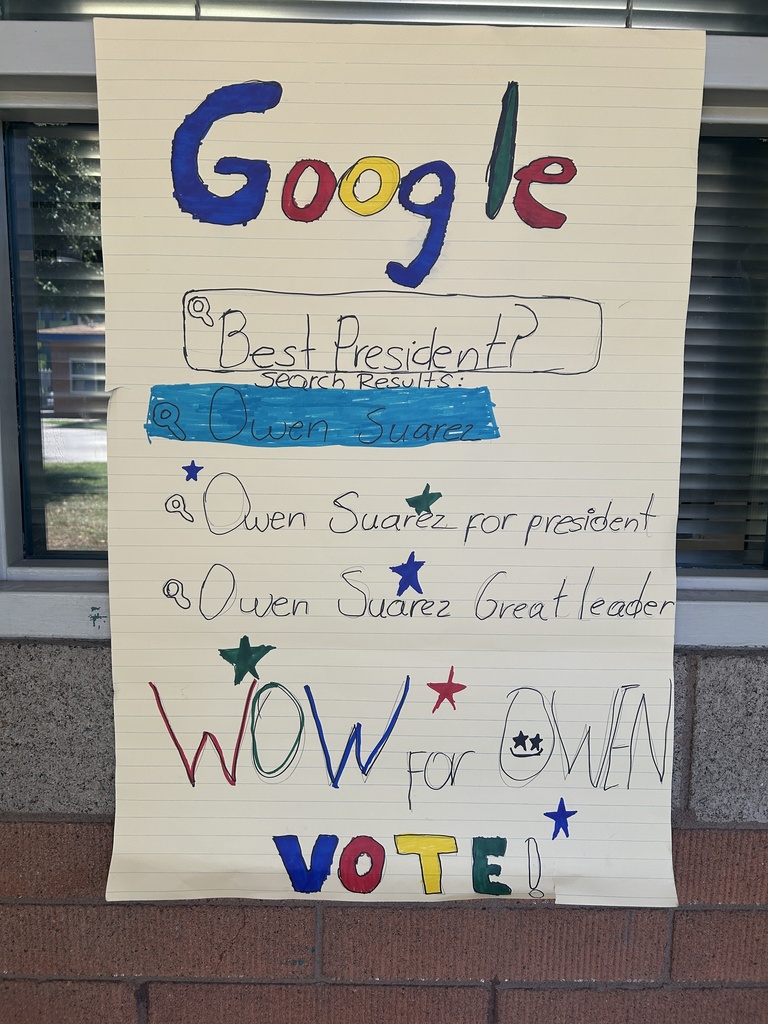 Google
Best President?
Search Results:
Owen Suarez
Owen Suarez for president
Owen Suarez Great leader
WOW FOR OWEN
VOTE!